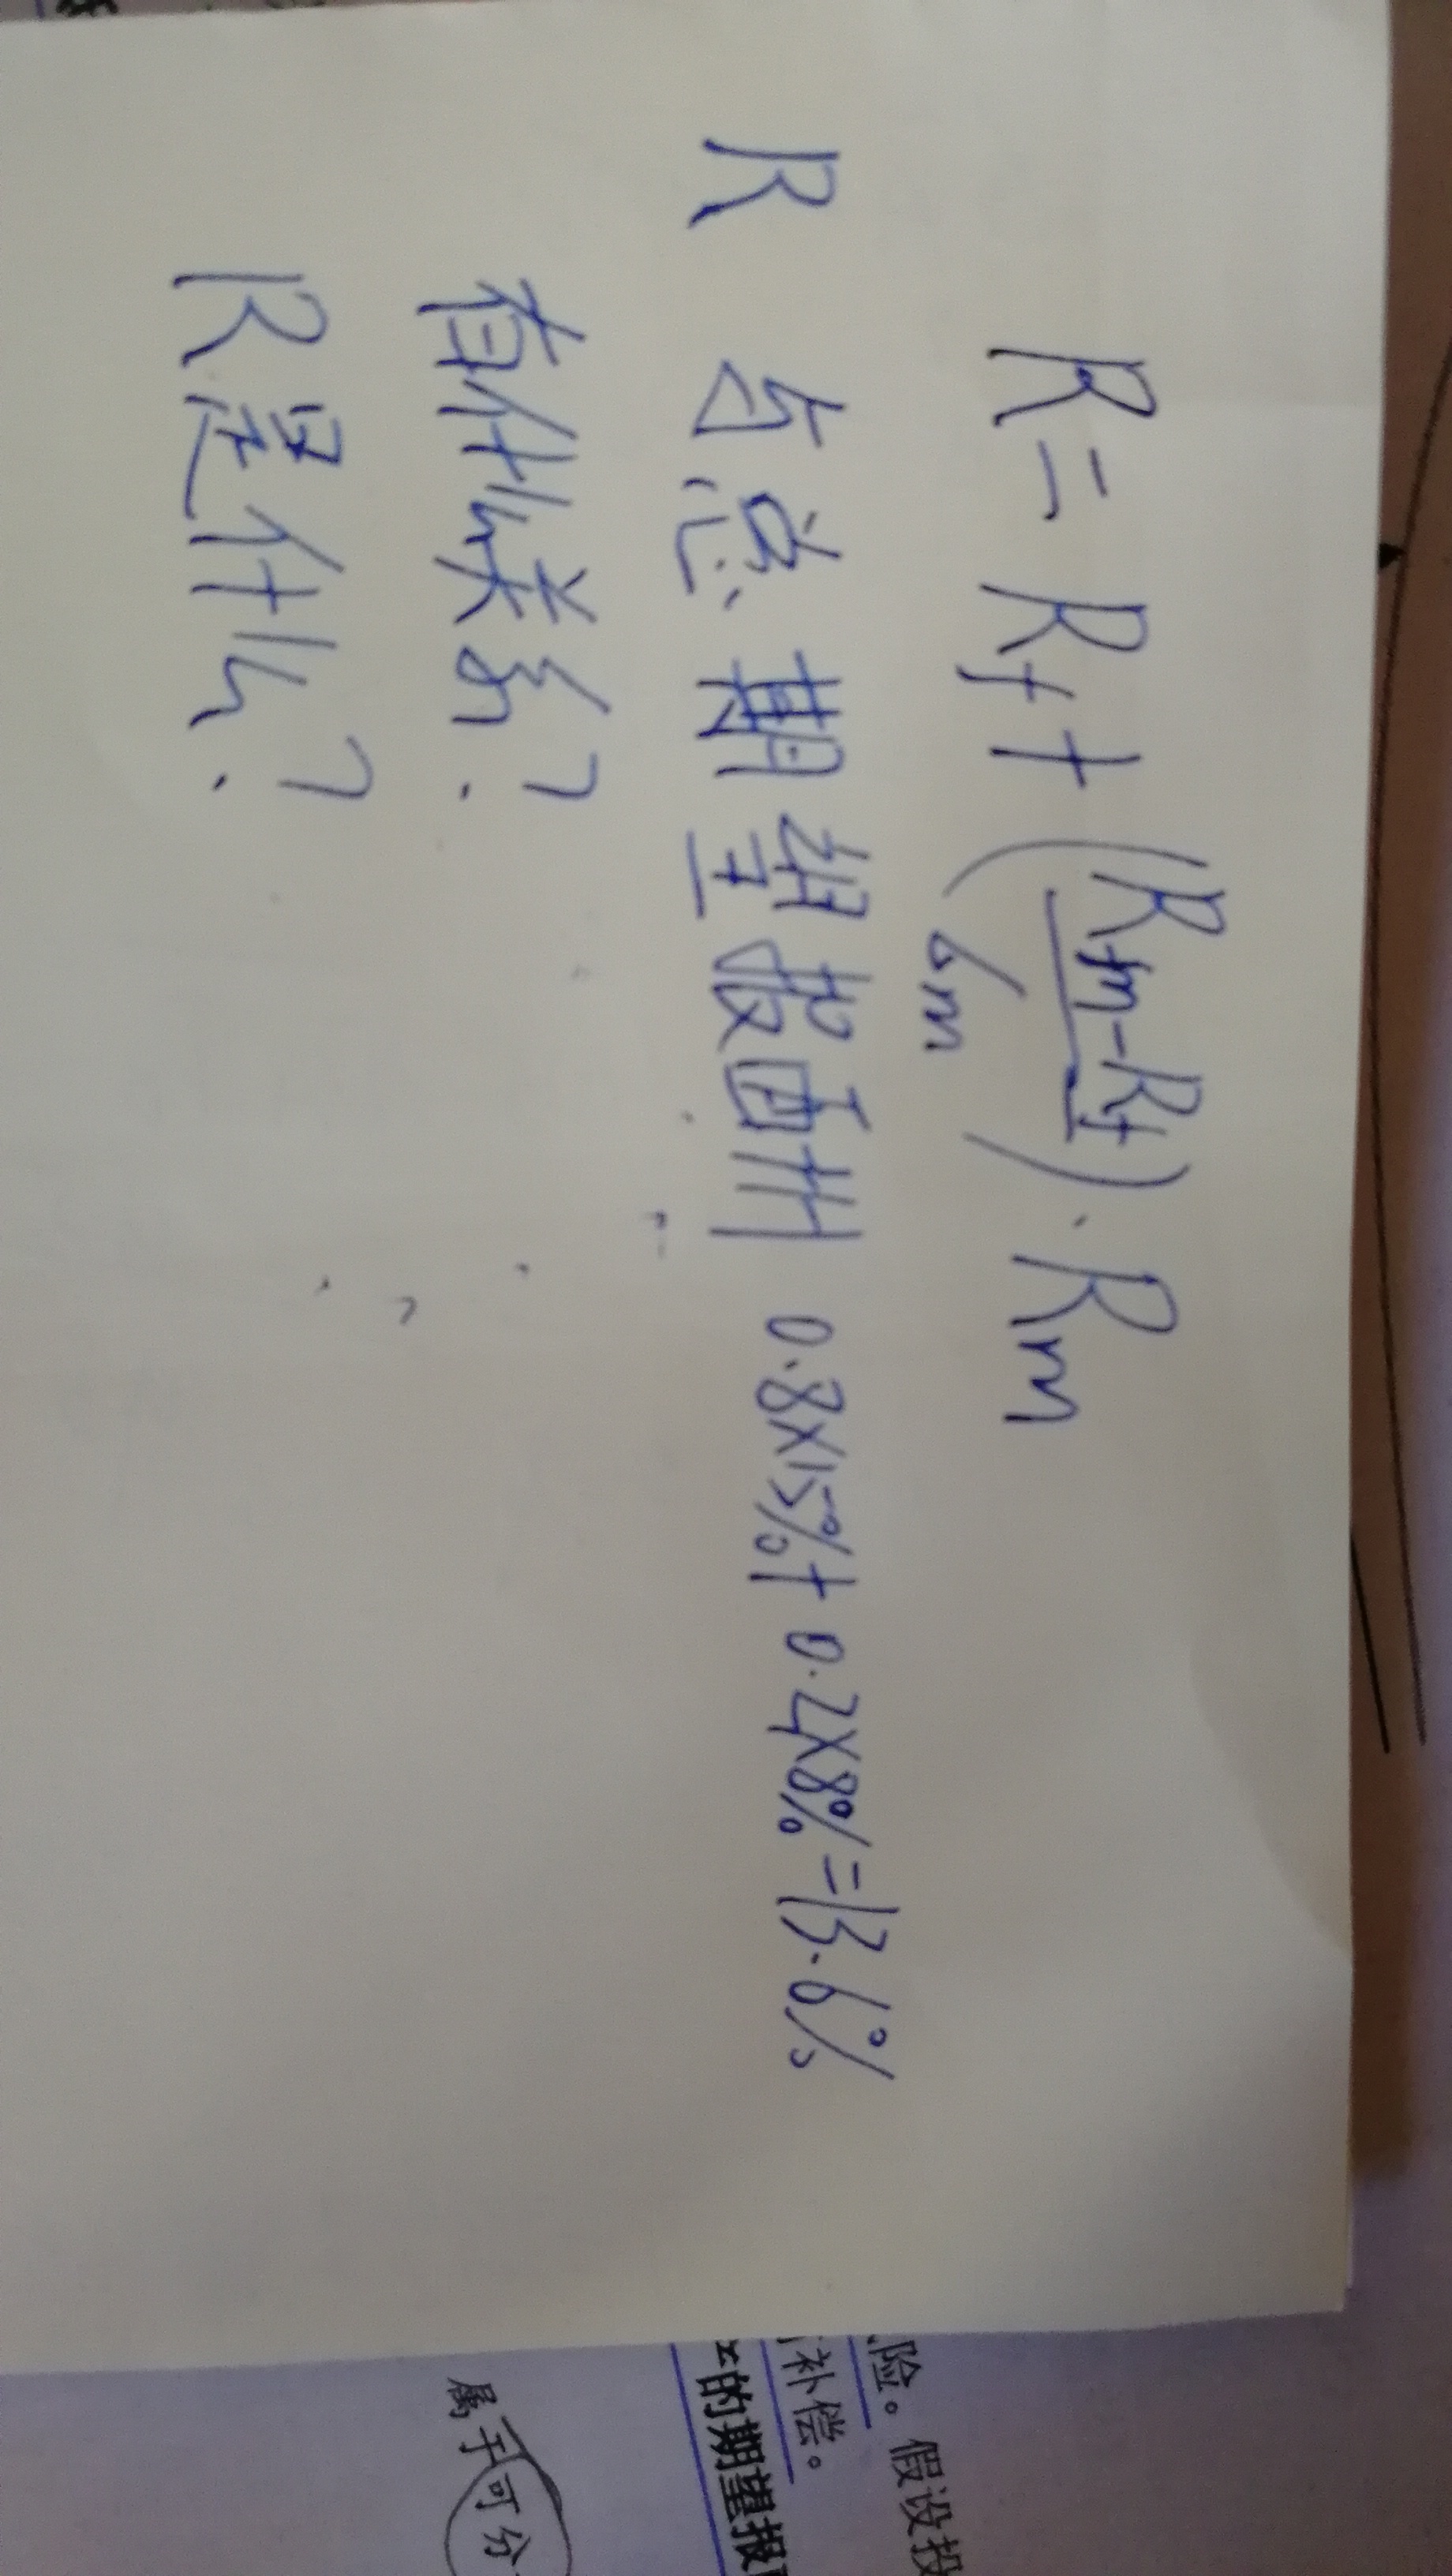 R = Rf + (Rm-Rf/6m)·Rm
R 与总期望报酬 0.8×15%+0.2×8%=13.6%
有什么关系?
R是什么?
险。假设投
补偿。
的期望报
属于可分